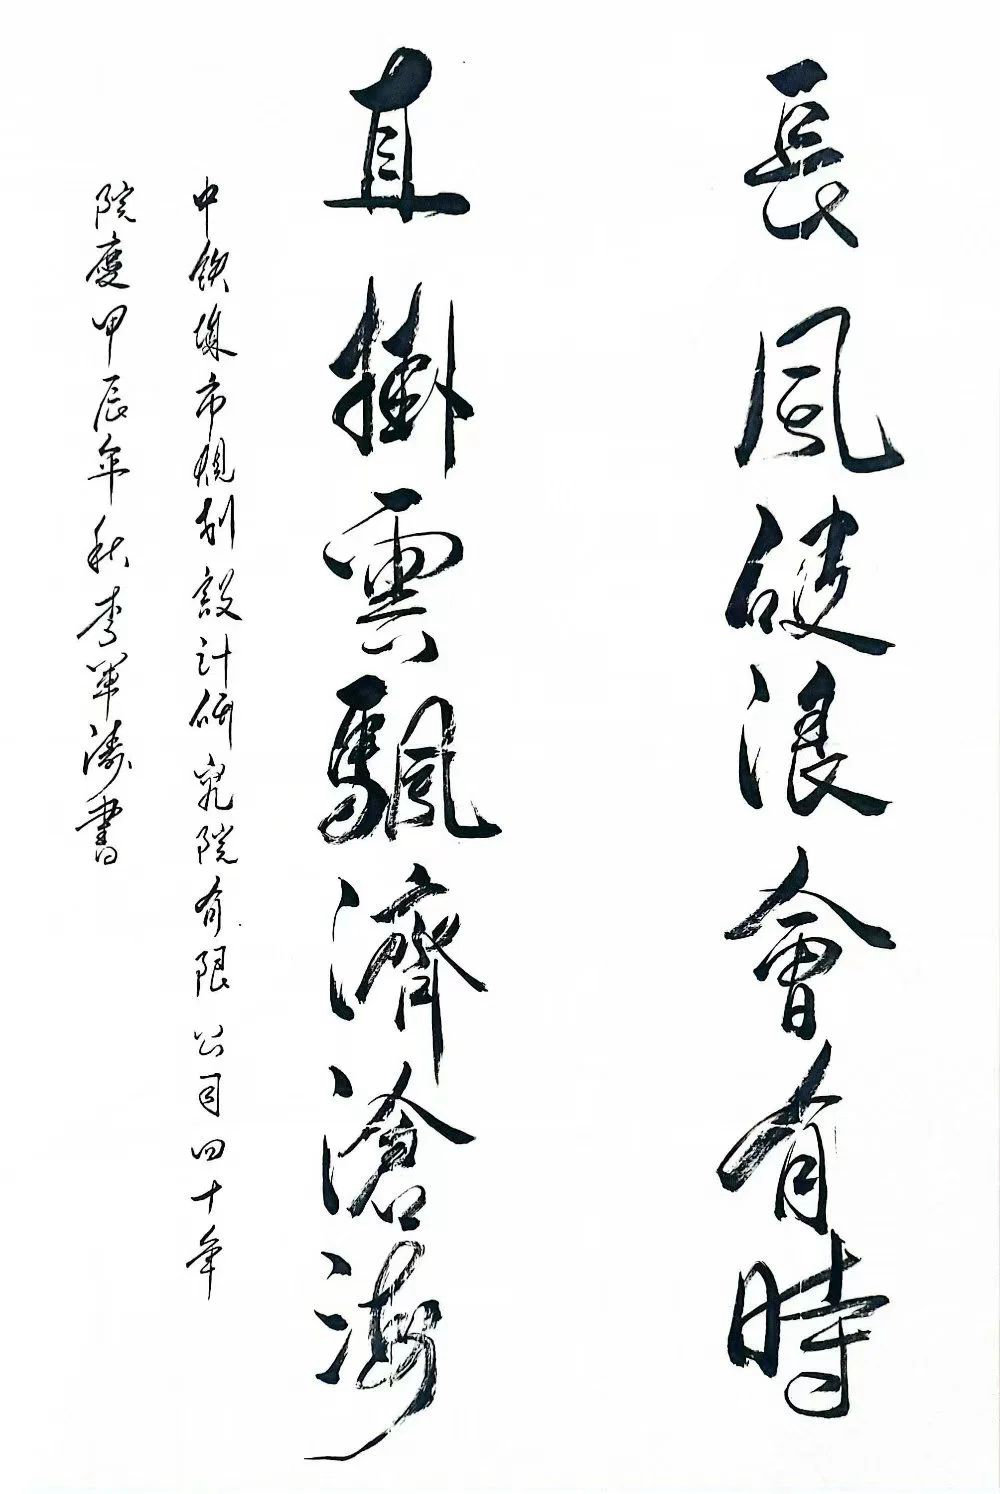 長風破浪會有時
直掛雲飄濟滄海
中铁城市规划設计研究院有限公司四十年
院慶甲辰年秋李军涛書